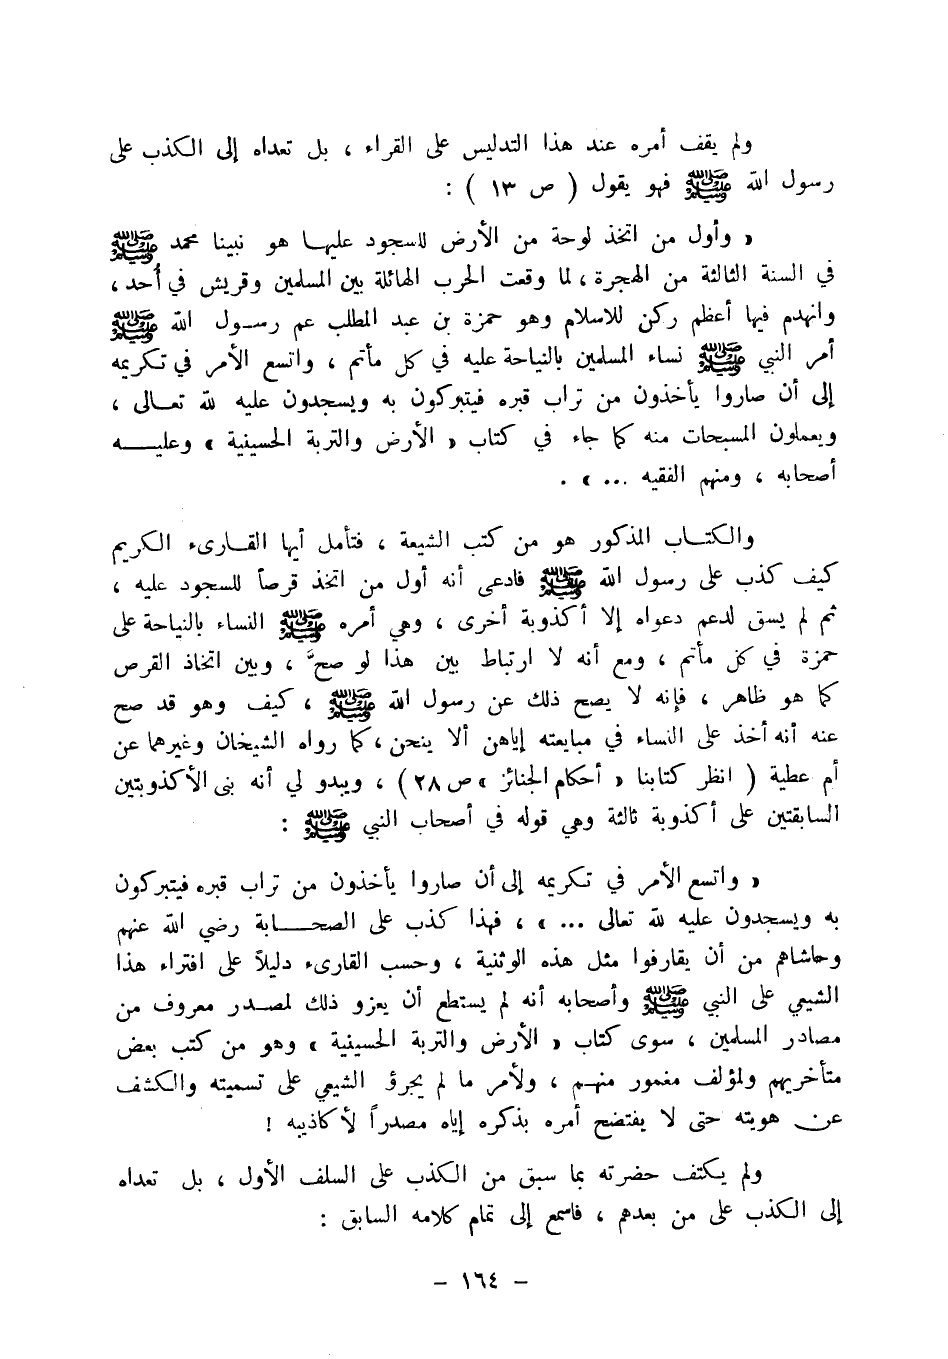 ولم يقف أمره عند هذا التدليس على القراء ، بل تعداه إلى الكذب على
رسول الله ﷺ فهو يقول ( ص ١٣ ) :
« وأول من اتخذ لوحة من الأرض للسجود عليها هو نبينا محمد ﷺ
في السنة الثالثة من الهجرة ، لما وقعت الحرب الهائلة بين المسلمين وقريش في أُحد ،
وانهدم فيها أعظم ركن للاسلام وهو حمزة بن عبد المطلب عم رسول الله ﷺ
أمر النبي ﷺ نساء المسلمين بالنياحة عليه في كل مأتم ، واتسع الأمر في تكريمه
إلى أن صاروا يأخذون من تراب قبره فيتبركون به ويسجدون عليه لله تعالى ،
ويعملون المسبحات منه كما جاء في كتاب « الأرض والتربة الحسينية » وعليه
أصحابه ، ومنهم الفقيه ... » .
والكتاب المذكور هو من كتب الشيعة ، فتأمل أيها القارىء الكريم
كيف كذب على رسول الله ﷺ فادعى أنه أول من اتخذ قرصاً للسجود عليه ،
ثم لم يسق لدعم دعواه إلا أكذوبة أخرى ، وهي أمره ﷺ النساء بالنياحة على
حمزة في كل مأتم ، ومع أنه لا ارتباط بين هذا لو صحَّ ، وبين اتخاذ القرص
كما هو ظاهر ، فإنه لا يصح ذلك عن رسول الله ﷺ ، كيف وهو قد صح
عنه أنه أخذ على النساء في مبايعته إياهن ألا ينحن ، كما رواه الشيخان وغيرهما عن
أم عطية ( انظر كتابنا « أحكام الجنائز » ص ٢٨ ) ، ويبدو لي أنه بنى الأكذوبتين
السابقتين على أكذوبة ثالثة وهي قوله في أصحاب النبي ﷺ :
« واتسع الأمر في تكريمه إلى أن صاروا يأخذون من تراب قبره فيتبركون
به ويسجدون عليه لله تعالى ... » ، فهذا كذب على الصحابة رضي الله عنهم
وحاشاهم من أن يقارفوا مثل هذه الوثنية ، وحسب القارىء دليلاً على افتراء هذا
الشيعي على النبي ﷺ وأصحابه أنه لم يستطع أن يعزو ذلك لمصدر معروف من
مصادر المسلمين ، سوى كتاب « الأرض والتربة الحسينية » وهو من كتب بعض
متأخريهم ولمؤلف مغمور منهم ، ولأمر ما لم يجرؤ الشيعي على تسميته والكشف
عن هويته حتى لا يفتضح أمره بذكره إياه مصدراً لأكاذيبه !
ولم يكتف حضرته بما سبق من الكذب على السلف الأول ، بل تعداه
إلى الكذب على من بعدهم ، فاسمع إلى تمام كلامه السابق :
- ١٦٤ -